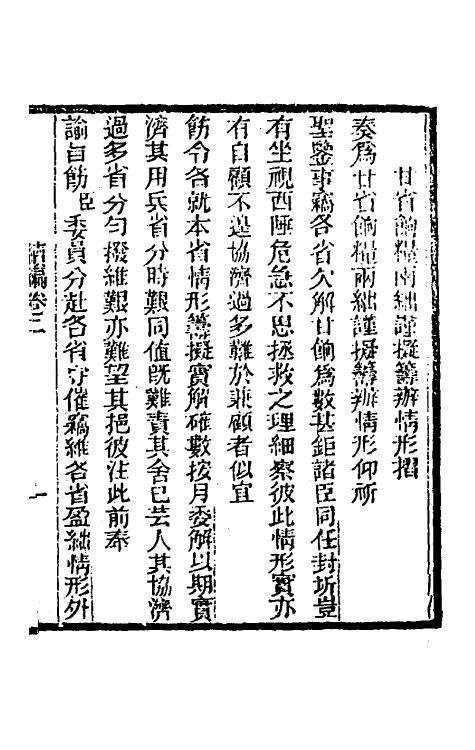 甘省餉糧兩絀謹擬籌辦情形摺
奏爲甘省餉糧兩絀謹擬籌辦情形仰祈
聖鑒事竊各省欠解甘餉爲數甚鉅諸臣同任封圻豈
有坐視西陲危急不思拯救之理細察彼此情形實亦
有自顧不遑協濟過多難於兼顧者似宜
飭令各就本省情形籌擬實解確數按月委解以期實
濟其用兵省分時艱同値旣難責其舍己芸人其協濟
過多省分勻撥維艱亦難望其挹彼注此前奉
諭旨飭臣委員分赴各省守催竊維各省盈絀情形外
續編卷三
一